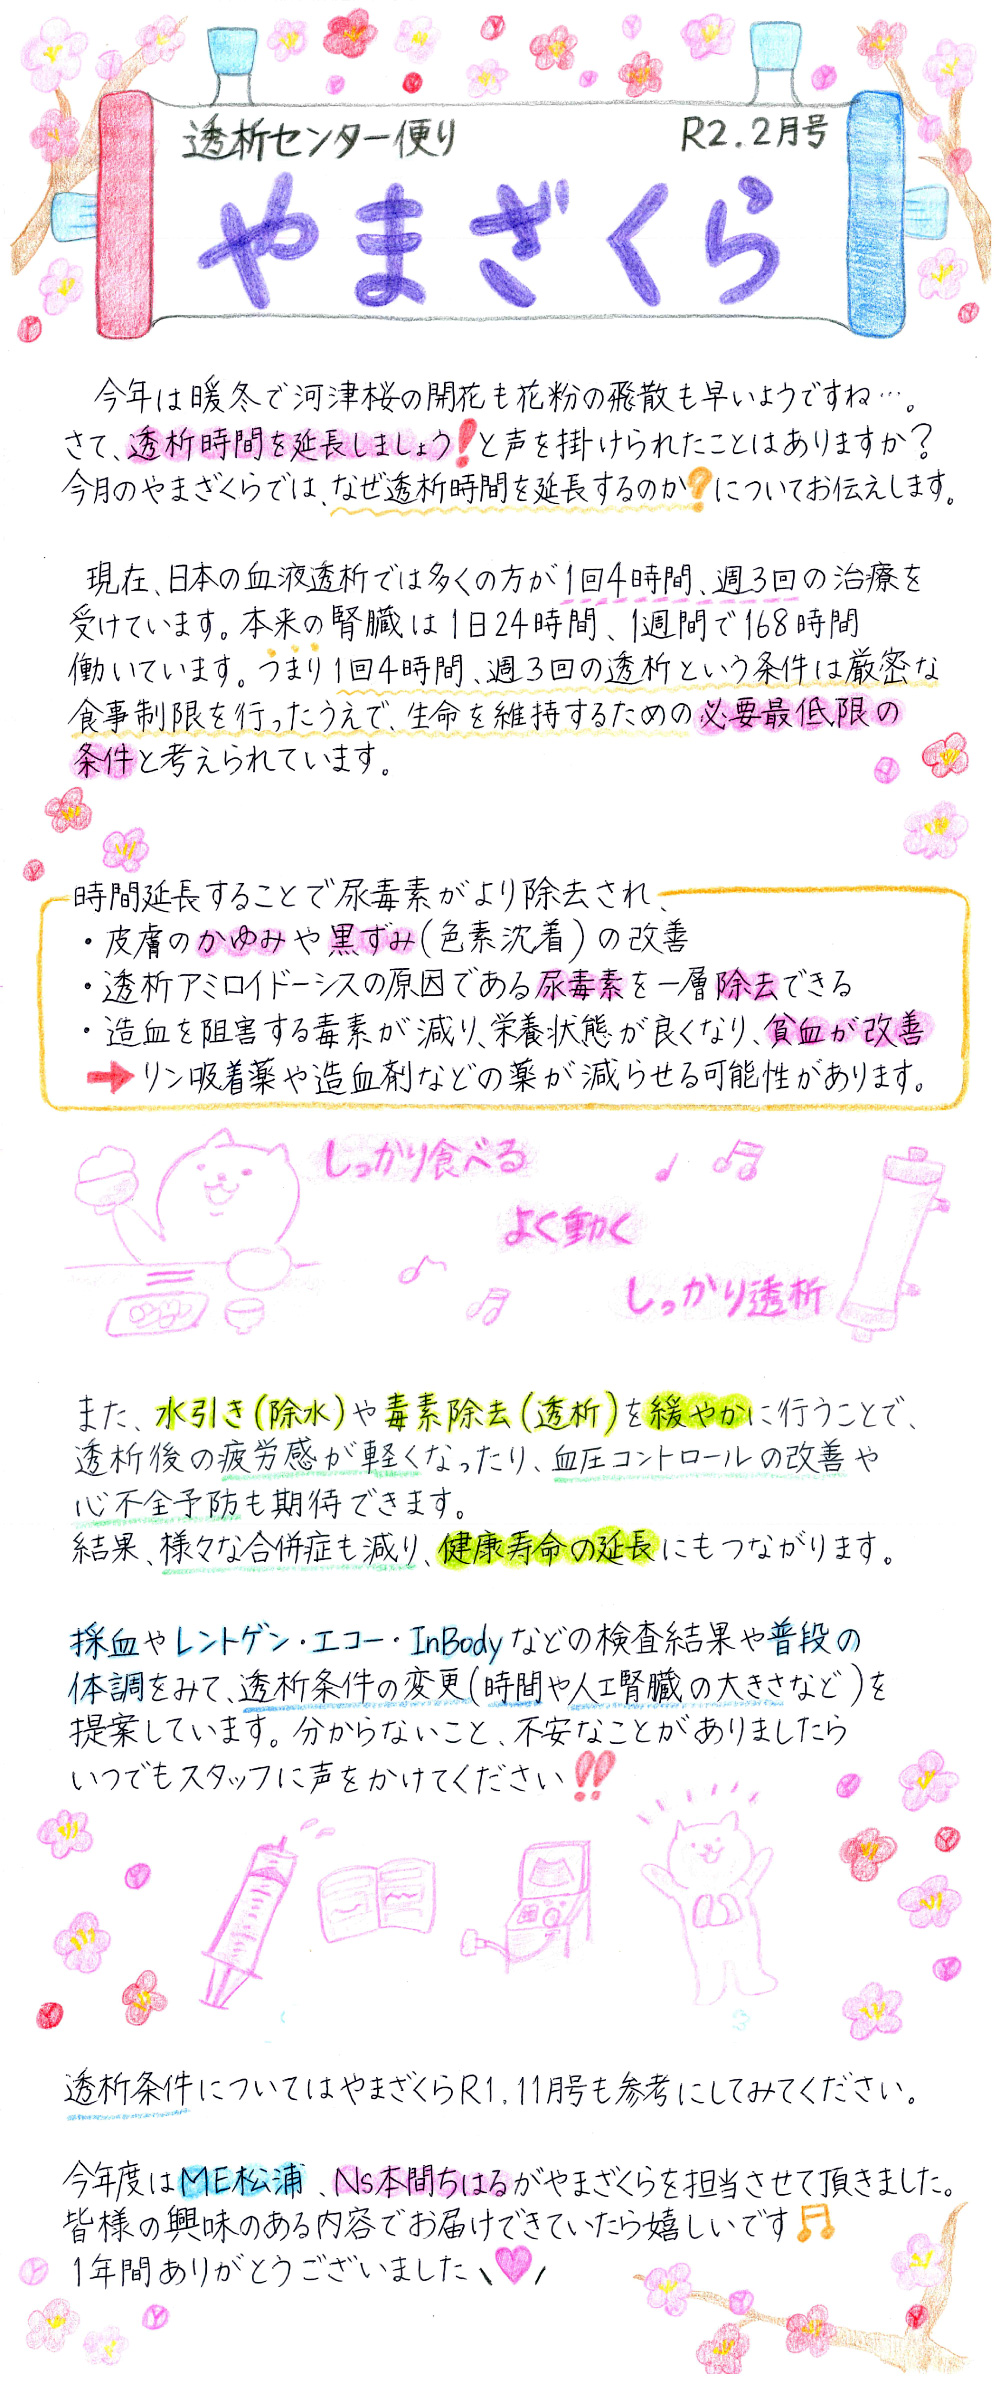 透析センター便り
R2.2月号
やまざくら
今年は暖冬で河津桜の開花も花粉の飛散も早いようですね…。
さて、透析時間を延長しましょう!と声を掛けられたことはありますか?
今月のやまざくらでは、なぜ透析時間を延長するのか?についてお伝えします。
現在、日本の血液透析では多くの方が1回4時間、週3回の治療を
受けています。本来の腎臓は1日24時間、1週間で168時間
働いています。つまり1回4時間、週3回の透析という条件は厳密な
食事制限を行ったうえで、生命を維持するための必要最低限の
条件と考えられています。
時間延長することで尿毒素がより除去され、
・皮膚のかゆみや黒ずみ(色素沈着)の改善
・透析アミロイドーシスの原因である尿毒素を一層除去できる
・造血を阻害する毒素が減り、栄養状態が良くなり、貧血が改善
➡リン吸着薬や造血剤などの薬が減らせる可能性があります。
しっかり食べる
よく動く
しっかり透析
また、水引き(除水)や毒素除去(透析)を緩やかに行うことで、
透析後の疲労感が軽くなったり、血圧コントロールの改善や
心不全予防も期待できます。
結果、様々な合併症も減り、健康寿命の延長にもつながります。
採血やレントゲン・エコー・InBodyなどの検査結果や普段の
体調をみて、透析条件の変更(時間や人工腎臓の大きさなど)を
提案しています。分からないこと、不安なことがありましたら
いつでもスタッフに声をかけてください!!
透析条件についてはやまざくらR1.11月号も参考にしてみてください。
今年度はME松浦、Ns本間ちはるがやまざくらを担当させて頂きました。
皆様の興味のある内容でお届けできていたら嬉しいです♫
1年間ありがとうございました♥